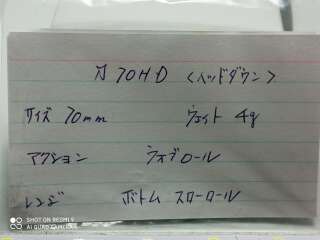 刀 70HD <ヘッドダウン>
サイズ 70mm ウェイト 4g
アクション ウォブロール
レンジ ボトム スローロール
SHOT ON REDMI 9
AI QUAD CAMERA